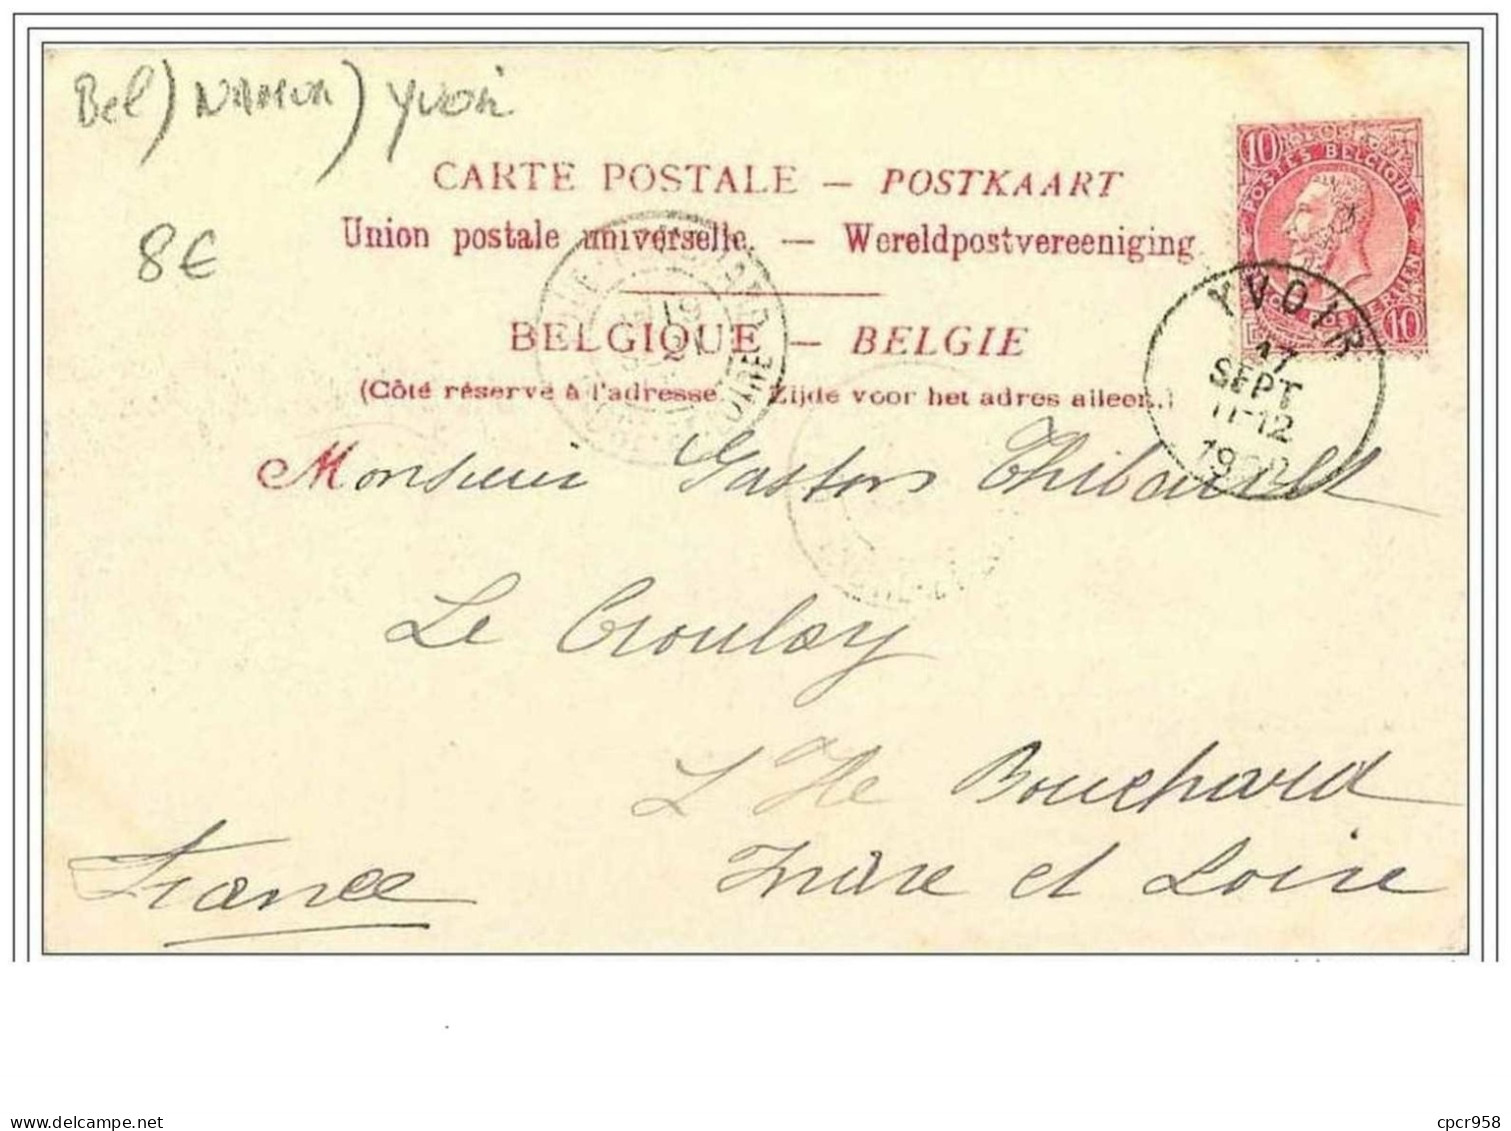 Bel) NAMUR) Yvoir
8€
CARTE POSTALE — POSTKAART
Union postale universelle. — Wereldpostvereeniging
BELGIQUE — BELGIE
(Côté réservé à l'adresse. Zijde voor het adres alleen.)
10 10
POSTES BELGIQUE
YVOIR
17
SEPT
11-12
Monsieur Gaston Thibault
Le Croulay
L'Ile Bouchard
Indre et Loire
France
cpcr958